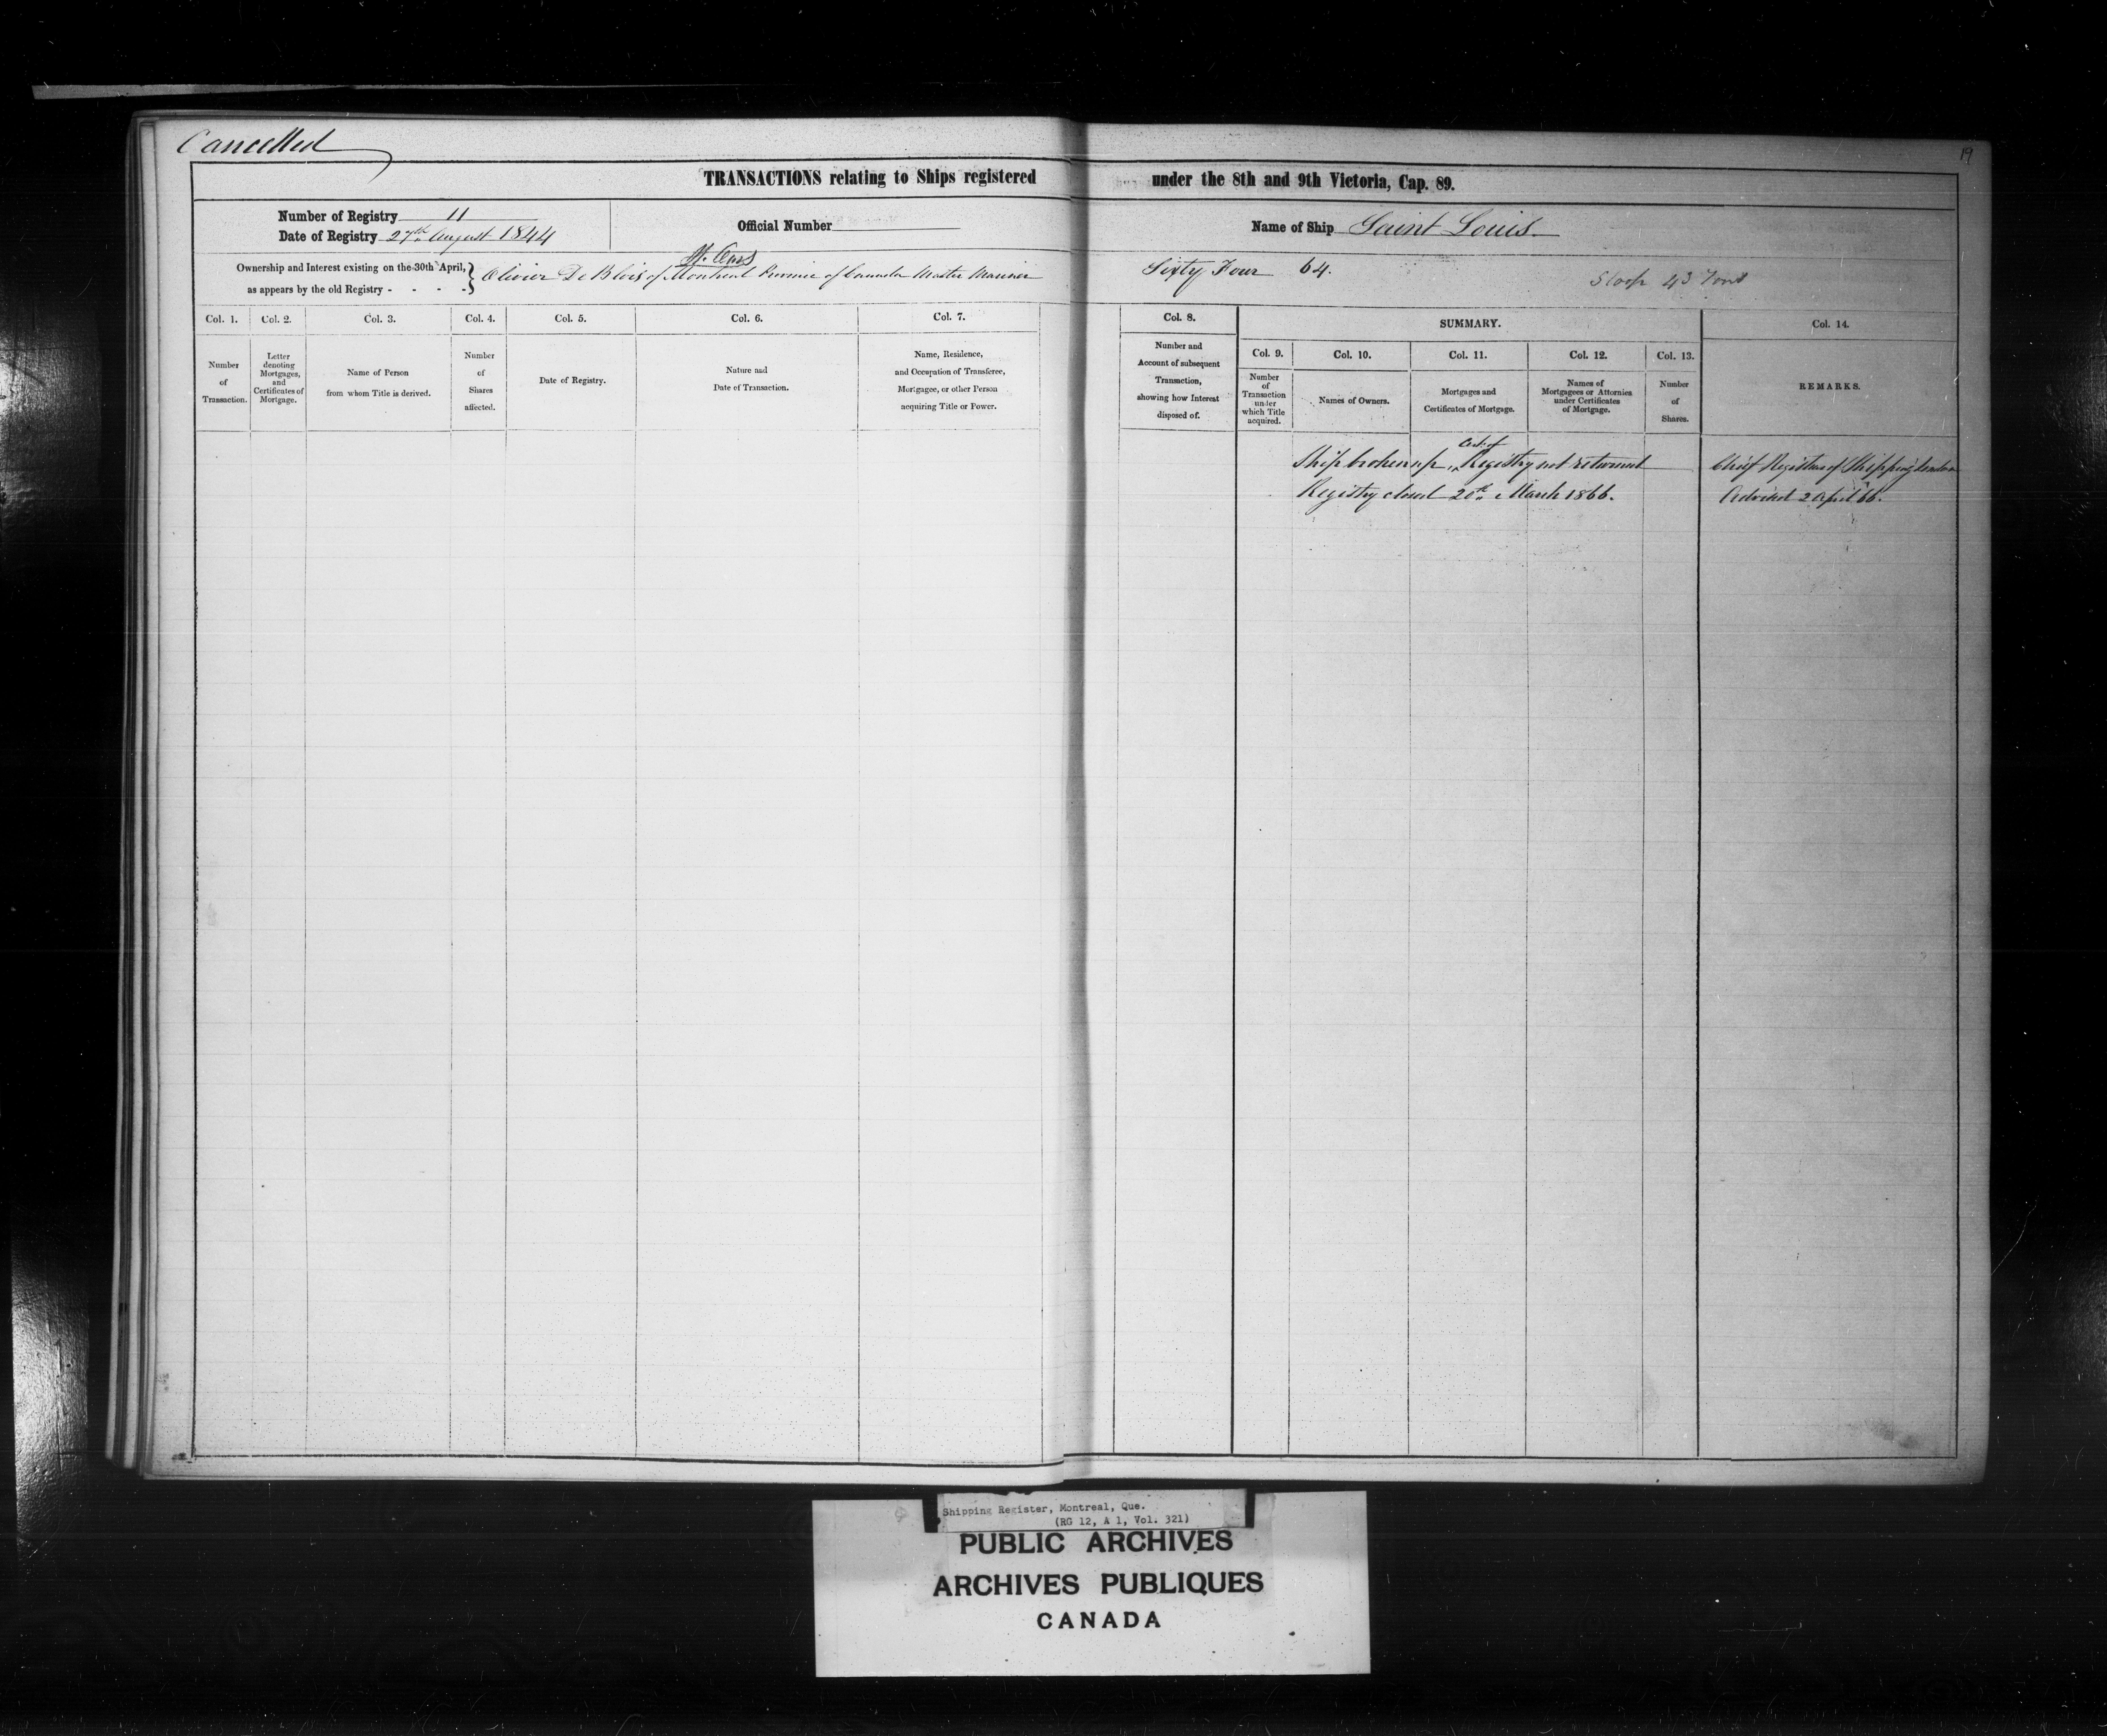 Cancelled
19
TRANSACTIONS relating to Ships registered under the 8th and 9th Victoria, Cap. 89.
Number of Registry 11
Date of Registry 27th August 1844
Official Number
Name of Ship Saint Louis
Ownership and Interest existing on the 30th April,
as appears by the old Registry - - - -
Olivier De Blois of Montreal Province of Canada Master Mariner
Sixty Four 64.
Sloop 43 Tons
Col. 1. Col. 2. Col. 3. Col. 4. Col. 5. Col. 6. Col. 7. Col. 8. SUMMARY. Col. 14.
Col. 9. Col. 10. Col. 11. Col. 12. Col. 13.
Number
of
Transaction.
Letter
denoting
Mortgages,
and
Certificates of
Mortgage.
Name of Person
from whom Title is derived.
Number
of
Shares
affected.
Date of Registry.
Nature nad
Date of Transaction.
Name, Residence,
and Occupation of Transferee,
Mortgagee, or other Person
acquiring Title or Power.
Number and
Account of subsequent
Transaction,
showing how Interest
disposed of.
Number
of
Transaction
under
which Title
acquired.
Names of Owners.
Mortgages and
Certificates of Mortgage.
Names of
Mortgagees or Attornies
under Certificates
of Mortgage.
Number
of
Shares.
REMARKS.
Ship broken up, Cert. of Registry not returned
Registry closed 20th March 1866.
Chief Registrar of Shipping London
Advised 2 April 66.
Shipping Register, Montreal, Que.
(RG 12, A 1, Vol. 321)
PUBLIC ARCHIVES
ARCHIVES PUBLIQUES
CANADA